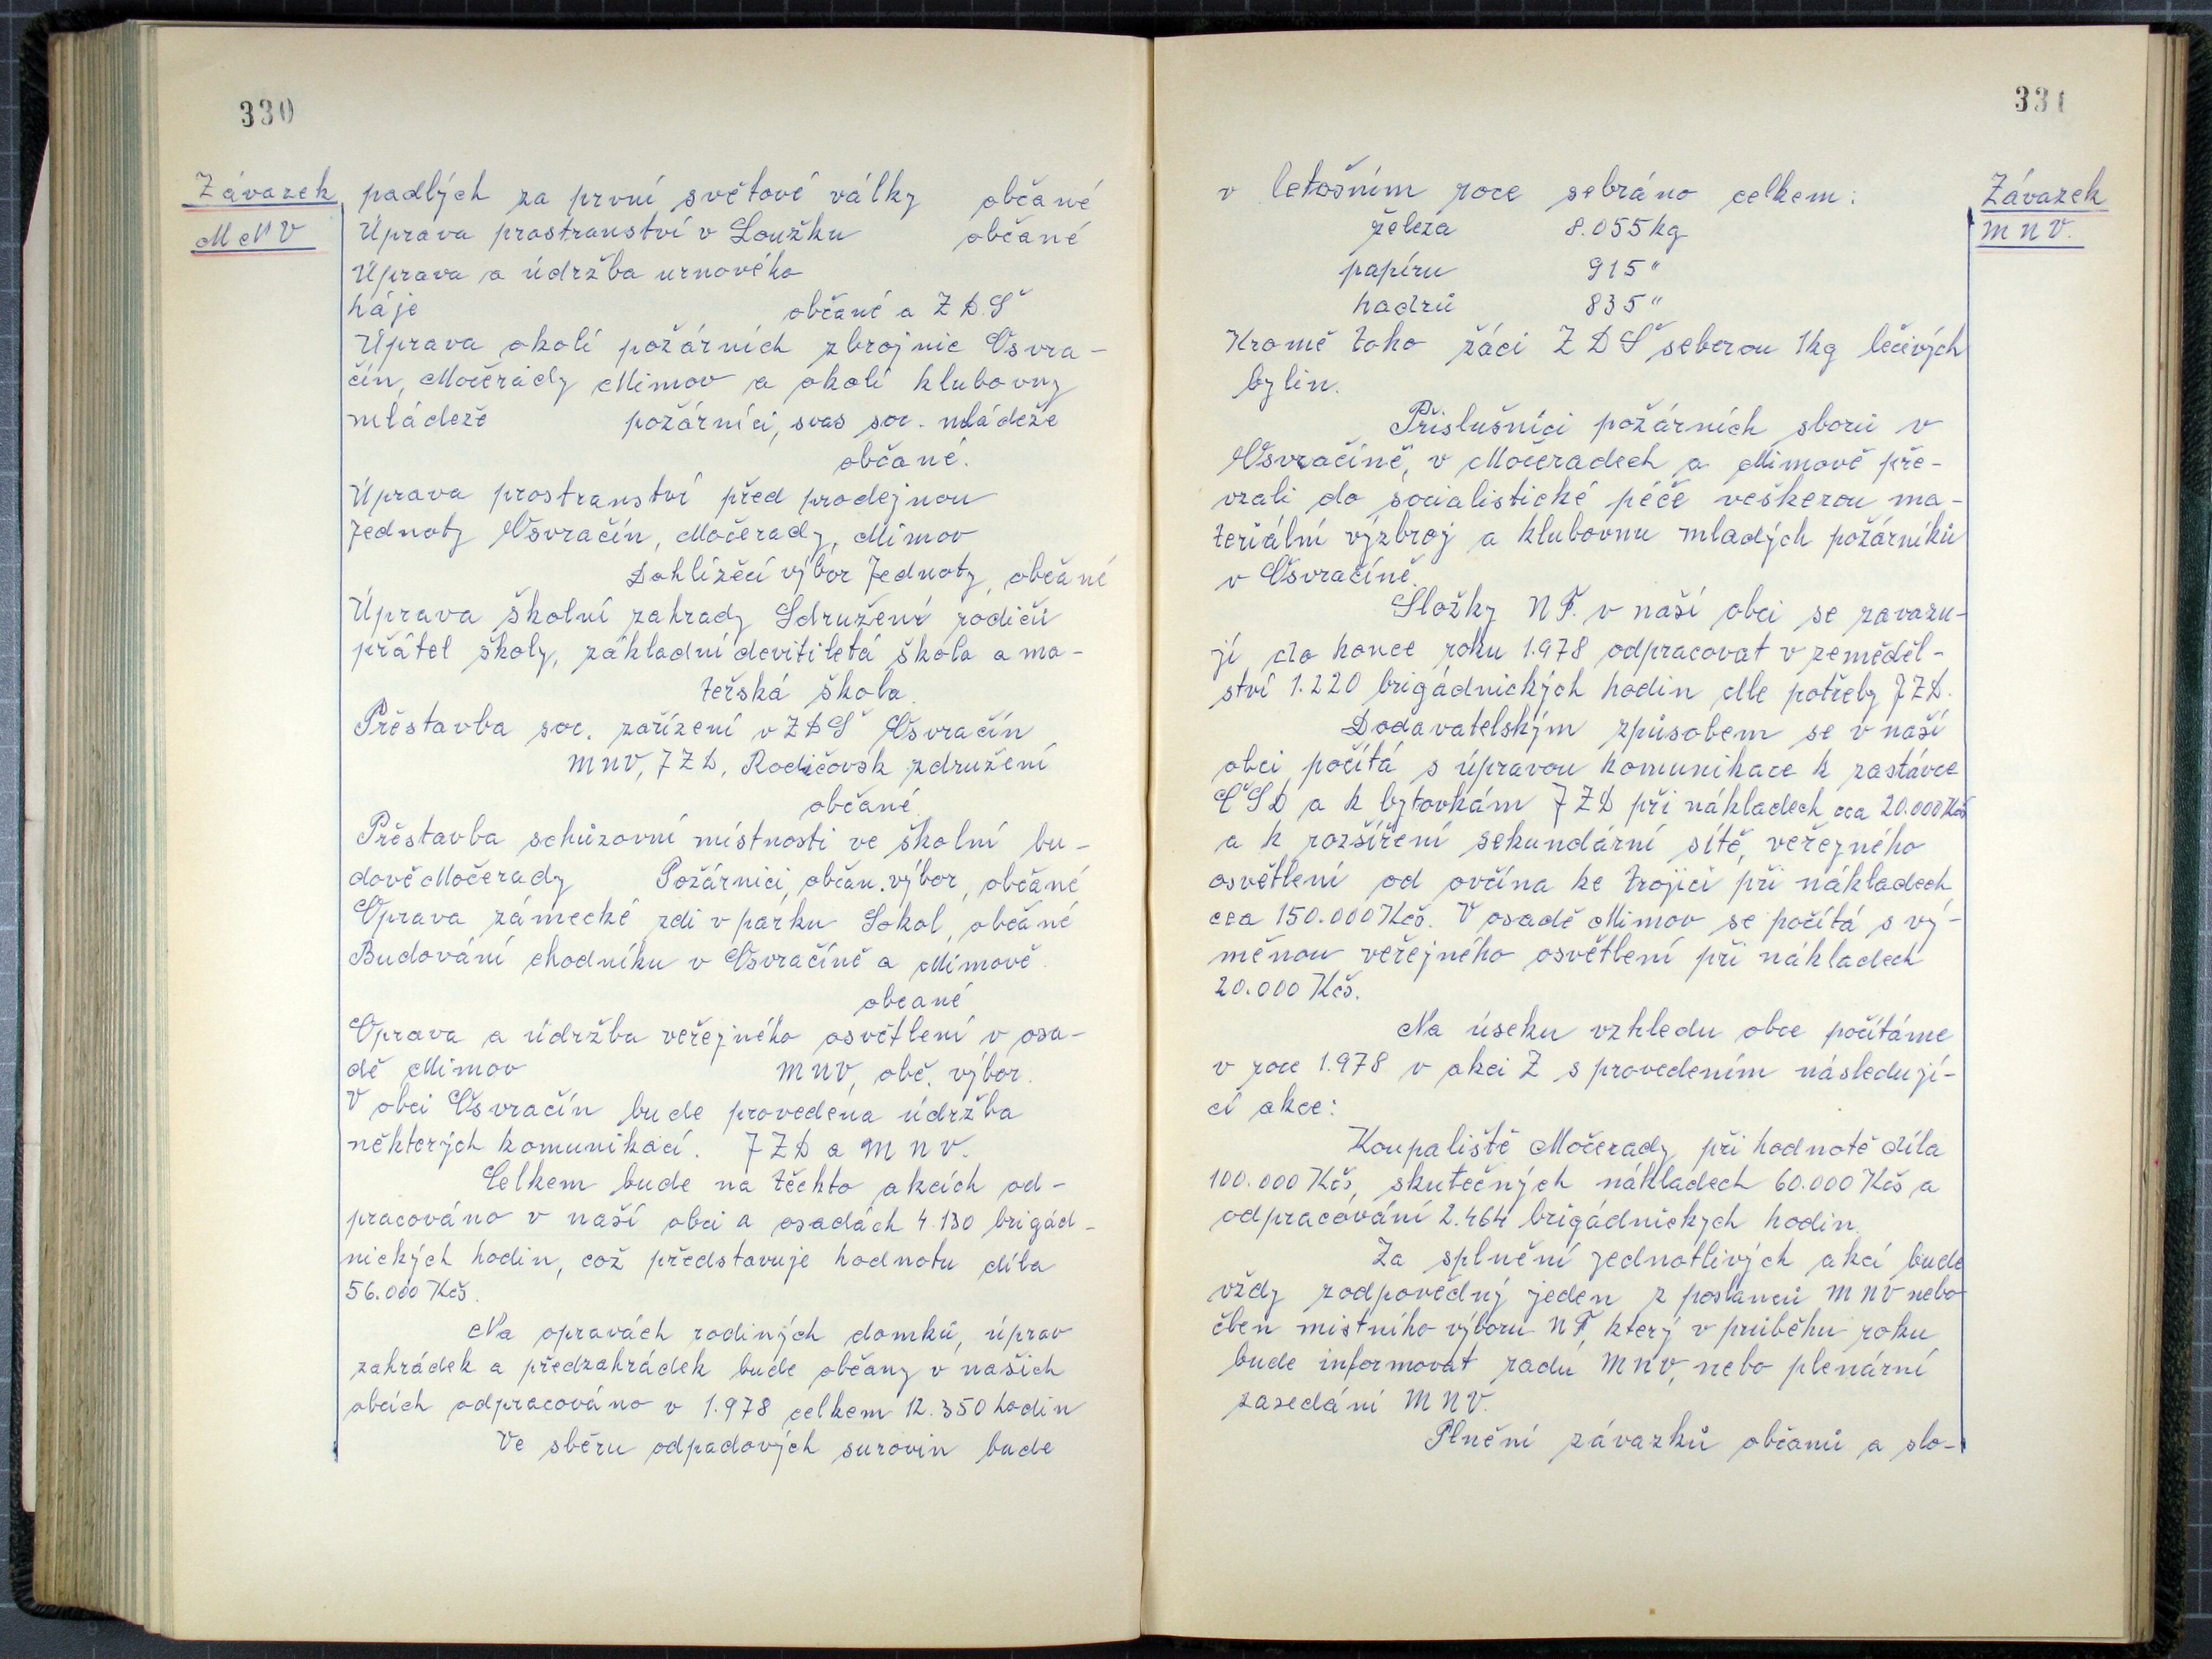 330
Závazek
MNV
padlých za první světové války občané
Úprava prostranství v Loužku občané
Úprava a údržba urnového
háje občané a ZDŠ
Úprava okolí požárních zbrojnic Osvra-
čín, Močerady Mimov a okolí klubovny
mládeže požárníci, svas soc. mládeže
občané.
Úprava prostranství před prodejnou
Jednoty Osvračín, Močerady, Mimov
Dohlížecí výbor Jednoty, občané
Úprava školní zahrady Sdružení rodičů
přátel školy, základní devítiletá škola a ma-
teřská škola.
Přestavba soc. zařízení v ZDŠ Osvračín
MNV, JZD, Rodičovsk združení
občané.
Přestavba schůzovní místnosti ve školní bu-
dově Močerady Požárnici, občan. výbor, občané
Oprava zámecké zdi v parku Sokol, občané
Budování chodníku v Osvračíně a Mimově.
občané
Oprava a údržba veřejného osvětlení v osa-
dě Mimov MNV, obč. výbor.
V obci Osvračín bude provedena údržba
některých komunikací. JZD a MNV.
Celkem bude na těchto akcích od-
pracováno v naší obci a osadách 4.130 brigád-
nických hodin, což představuje hodnotu díla
56.000 Kčs.
Na opravách rodiných domků, úprav
zahrádek a předzahrádek bude občany v našich
obcích odpracováno v 1.978 celkem 12.350 hodin
Ve sběru odpadových surovin bude
331
Závazek
MNV.
v letošním roce sebráno celkem:
železa 8.055 kg
papíru 915 "
hadrů 835 "
Kromě toho žáci ZDŠ seberou 1kg léčivých
bylin.
Příslušníci požárních sborů v
Osvračíně, v Močeradech a Mimově pře-
vzali do socialistické péče veškerou ma-
teriální výzbroj a klubovnu mladých požárníků
v Osvračíně.
Složky NF. v naší obci se zavazu-
jí do konce roku 1.978 odpracovat v zeměděl-
ství 1.220 brigádnických hodin dle potřeby JZD.
Dodavatelským způsobem se v naší
obci počítá s úpravou komunikace k zastávce
ČSD a k bytovkám JZD při nákladech cca 20.000 Kčs
a k rozšíření sekundární sítě, veřejného
osvětlení od ovčína ke trojici při nákladech
cca 150.000 Kčs. V osadě Mimov se počítá s vý-
měnou veřejného osvětlení při nákladech
20.000 Kčs.
Na úseku vzhledu obce počítáme
v roce 1.978 v akci Z s provedením následují-
cí akce:
Koupaliště Močerady při hodnotě díla
100.000 Kčs, skutečných nákladech 60.000 Kčs a
odpracování 2.464 brigádnických hodin.
Za splnění jednotlivých akcí bude
vždy zodpovědný jeden z poslanců MNV nebo
člen místního výboru NF, který v průběhu roku
bude informovat radu MNV, nebo plenární
zasedání MNV.
Plnění závazků občanů a slo-